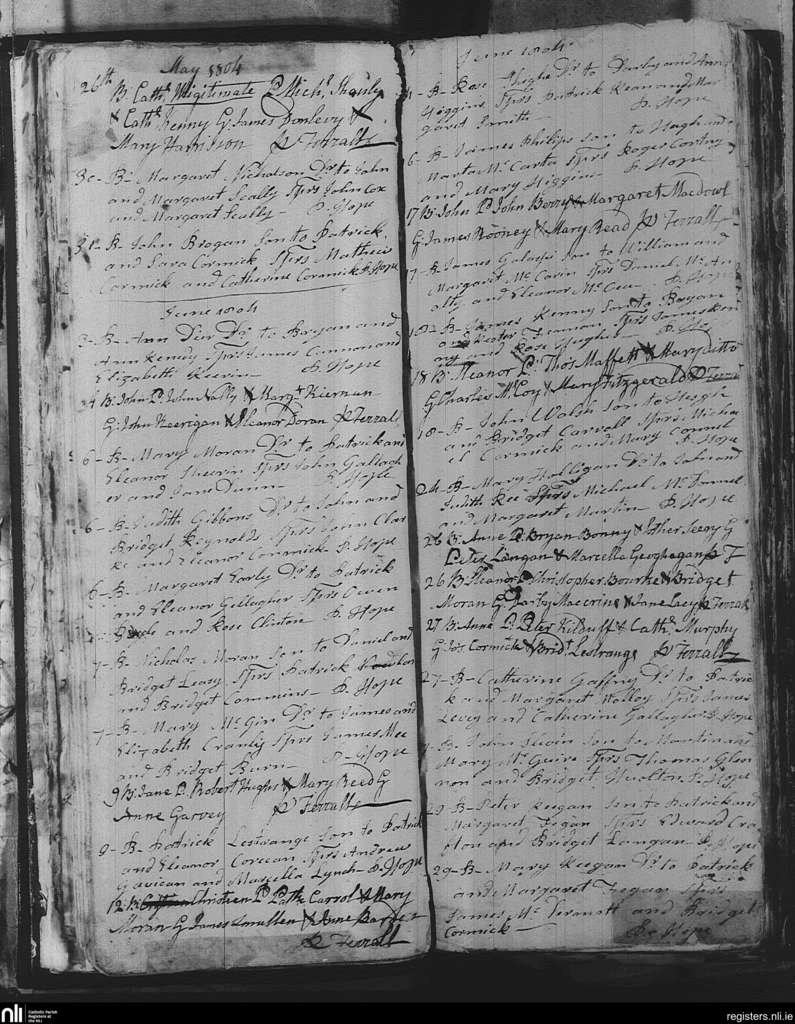 May 1804
26th B. Cathe. Illigitimate P Mich. Shanly
& Cathe. Kenny G James Donlevy &
Mary Harrison P Ferrall
30- B- Margaret Nicholson Dr. to John
and Margaret Scally Sprs John Cox
and Margaret Scally- P. Hope
31- B- John Brogan Son to Patrick,
and Sara Cormick Sprs Mathew
Cormick and Catherine Cormick P. Hope
June 1804
3- B- Ann Dr. to Bryan and
Ann Kenedy Sprs James Cannon and
Elizabeth P. Hope
B. John P. John Nally & Margt. Kiernan
G. John Keerigan & Eleanor Doran P Ferral
6- B- Mary Moran Dr. to Patrick and
Eleanor Sprs John Gallagh
er and Jane Dunn- P. Hope
6- B- Judith Gibbons Dr. to John and
Bridget Reynolds Sprs John Clar
ke and Eleanor Cormick- P. Hope
6- B- Margaret Early Dr. to Patrick
and Eleanor Gellagher Sprs Owen
and Rose Clinton P. Hope
7- B- Nicholas Moran Son to Daniel and
Bridget Leavy Sprs Patrick
and Bridget Commins- P. Hope
7- B- Mary Mc. Gin Dr. to James and
Elizabeth Cranly Sprs James Mee
and Bridget Burn- P- Hope
9 B. Jane P. Robert Hughs & Mary Reed G
Anne Garvey P Ferrall
9- B- Patrick Lestrange Son to Patrick
and Eleanor Corcean Sprs Andrew
Gavican and Marcella Lynch- P. Hope
12 B. Christien P Patk. Carrol & Mary
Moran G James Smullen & Anne
P Ferrall
June 1804
B- Rose Dr. to Darby and Ann
Higgins Sprs Patrick Keenan and Mar
garet Smith- P. Hope
6- B- James Philips Son to Hugh and
Marta Mc. Carta Sprs Roger
and Mary Higgins- P. Hope
17 B. John P. John Berry & Margaret Macdowl
G. James Rooney & Mary Read P Ferrall
B- James Son to William and
Margaret Mc. Cavin Sprs Daniel Mc.
and Eleanor Mc. P. Hope
18- B- James Kenny Son to Bryan
and Sprs James Ken
ny and Rose P. Ho
18 B. Eleanor P. Thos. Maffett & Mary ditto
G Charles Mc. Coy & Mary Fitzgerald P Ferrl
18- B- John Walsh Son to Hugh
and Bridget Carroll Sprs Micha
el Cormick and Mary P. Hope
24- B- Mary Holligan Dr. to John and
Judith Kee Sprs Michael Mc.
and Margaret Martin P. Hope
26 B. Anne P. Bryan Bonny & Esther Seery G
Peter Langan & Marcella Geoghagan P F
26 B. Eleanor P. Christopher Bourke & Bridget
Moran G. & Jane Lacy P Ferrall
27 B. Anne P. Peter Kilduff & Cathe. Murphy
G Jos. Cormick & Bridt. Lestrange P Ferrall
27- B- Catherine Gaffny Dr. to Patric
k and Margaret Malloy Sprs James
Levey and Catherine Gallagher P. Hope
B- John Son to Martin and
Mary Mc. Guire Sprs Thomas Glen
non and Bridget P. Hope
29 B- Peter Keegan Son to Patrick and
Margaret Fegan Sprs Edward Cra
and Bridget Langan P. Hope
29- B- Mary Keegan Dr. to Patrick
and Margaret Fegan Sprs
James Mc. Dermott and Bridget
Cormick- P. Hope
nli Catholic Parish
Registers at
the NLI
registers.nli.ie